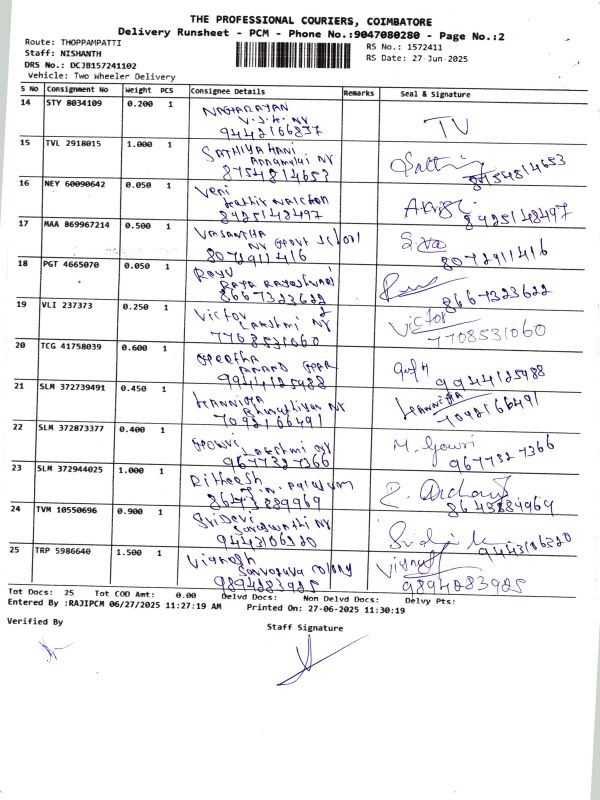 THE PROFESSIONAL COURIERS, COIMBATORE
Delivery Runsheet - PCM - Phone No.:9047080280 - Page No.:2
Route: THOPPAMPATTI
RS No.: 1572411
Staff: NISHANTH
RS Date: 27-Jun-2025
DRS No.: DCJB157241102
Vehicle: Two Wheeler Delivery
S No Consignment No Weight PCS Consignee Details Remarks Seal & Signature
14 STY 8034109 0.200 1 NAGARAJAN
TV
9442166837
15 TVL 2918015 1.000 1 SATHIYAVANI
Annamalai NR
8754814653 8754814653
16 NEY 60090642 0.050 1 Veni
8925148497 8925148497
17 MAA 869967214 0.500 1 VASANTHA
NR Govt School
8072911416 8072911416
18 PGT 4665070 0.050 1 RAJU
8667323622 8667323622
19 VLI 237373 0.250 1 Victor Victor
Lakshmi NR
7708531060 7708531060
20 TCG 41758039 0.600 1 GEETHA
9944125988 9944125988
21 SLM 372739491 0.450 1 HANNIGA HANNIGA
Bharathiyar NR
7092166491 7092166491
22 SLM 372873377 0.400 1 GOWRI M. Gowri
Lakshmi NR
9677327366 9677327366
23 SLM 372944025 1.000 1 Ritheesh
8643889969
24 TVM 10550696 0.900 1 SriDevi
Saraswathi NR
9443106320 9443106320
25 TRP 5986640 1.500 1 Vignesh
Sarvodaya colony
9894283925 9894283925
Tot Docs: 25 Tot COD Amt: 0.00 Delvd Docs: Non Delvd Docs: Delvy Pts:
Entered By :RAJIPCM 06/27/2025 11:27:19 AM Printed On: 27-06-2025 11:30:19
Verified By Staff Signature